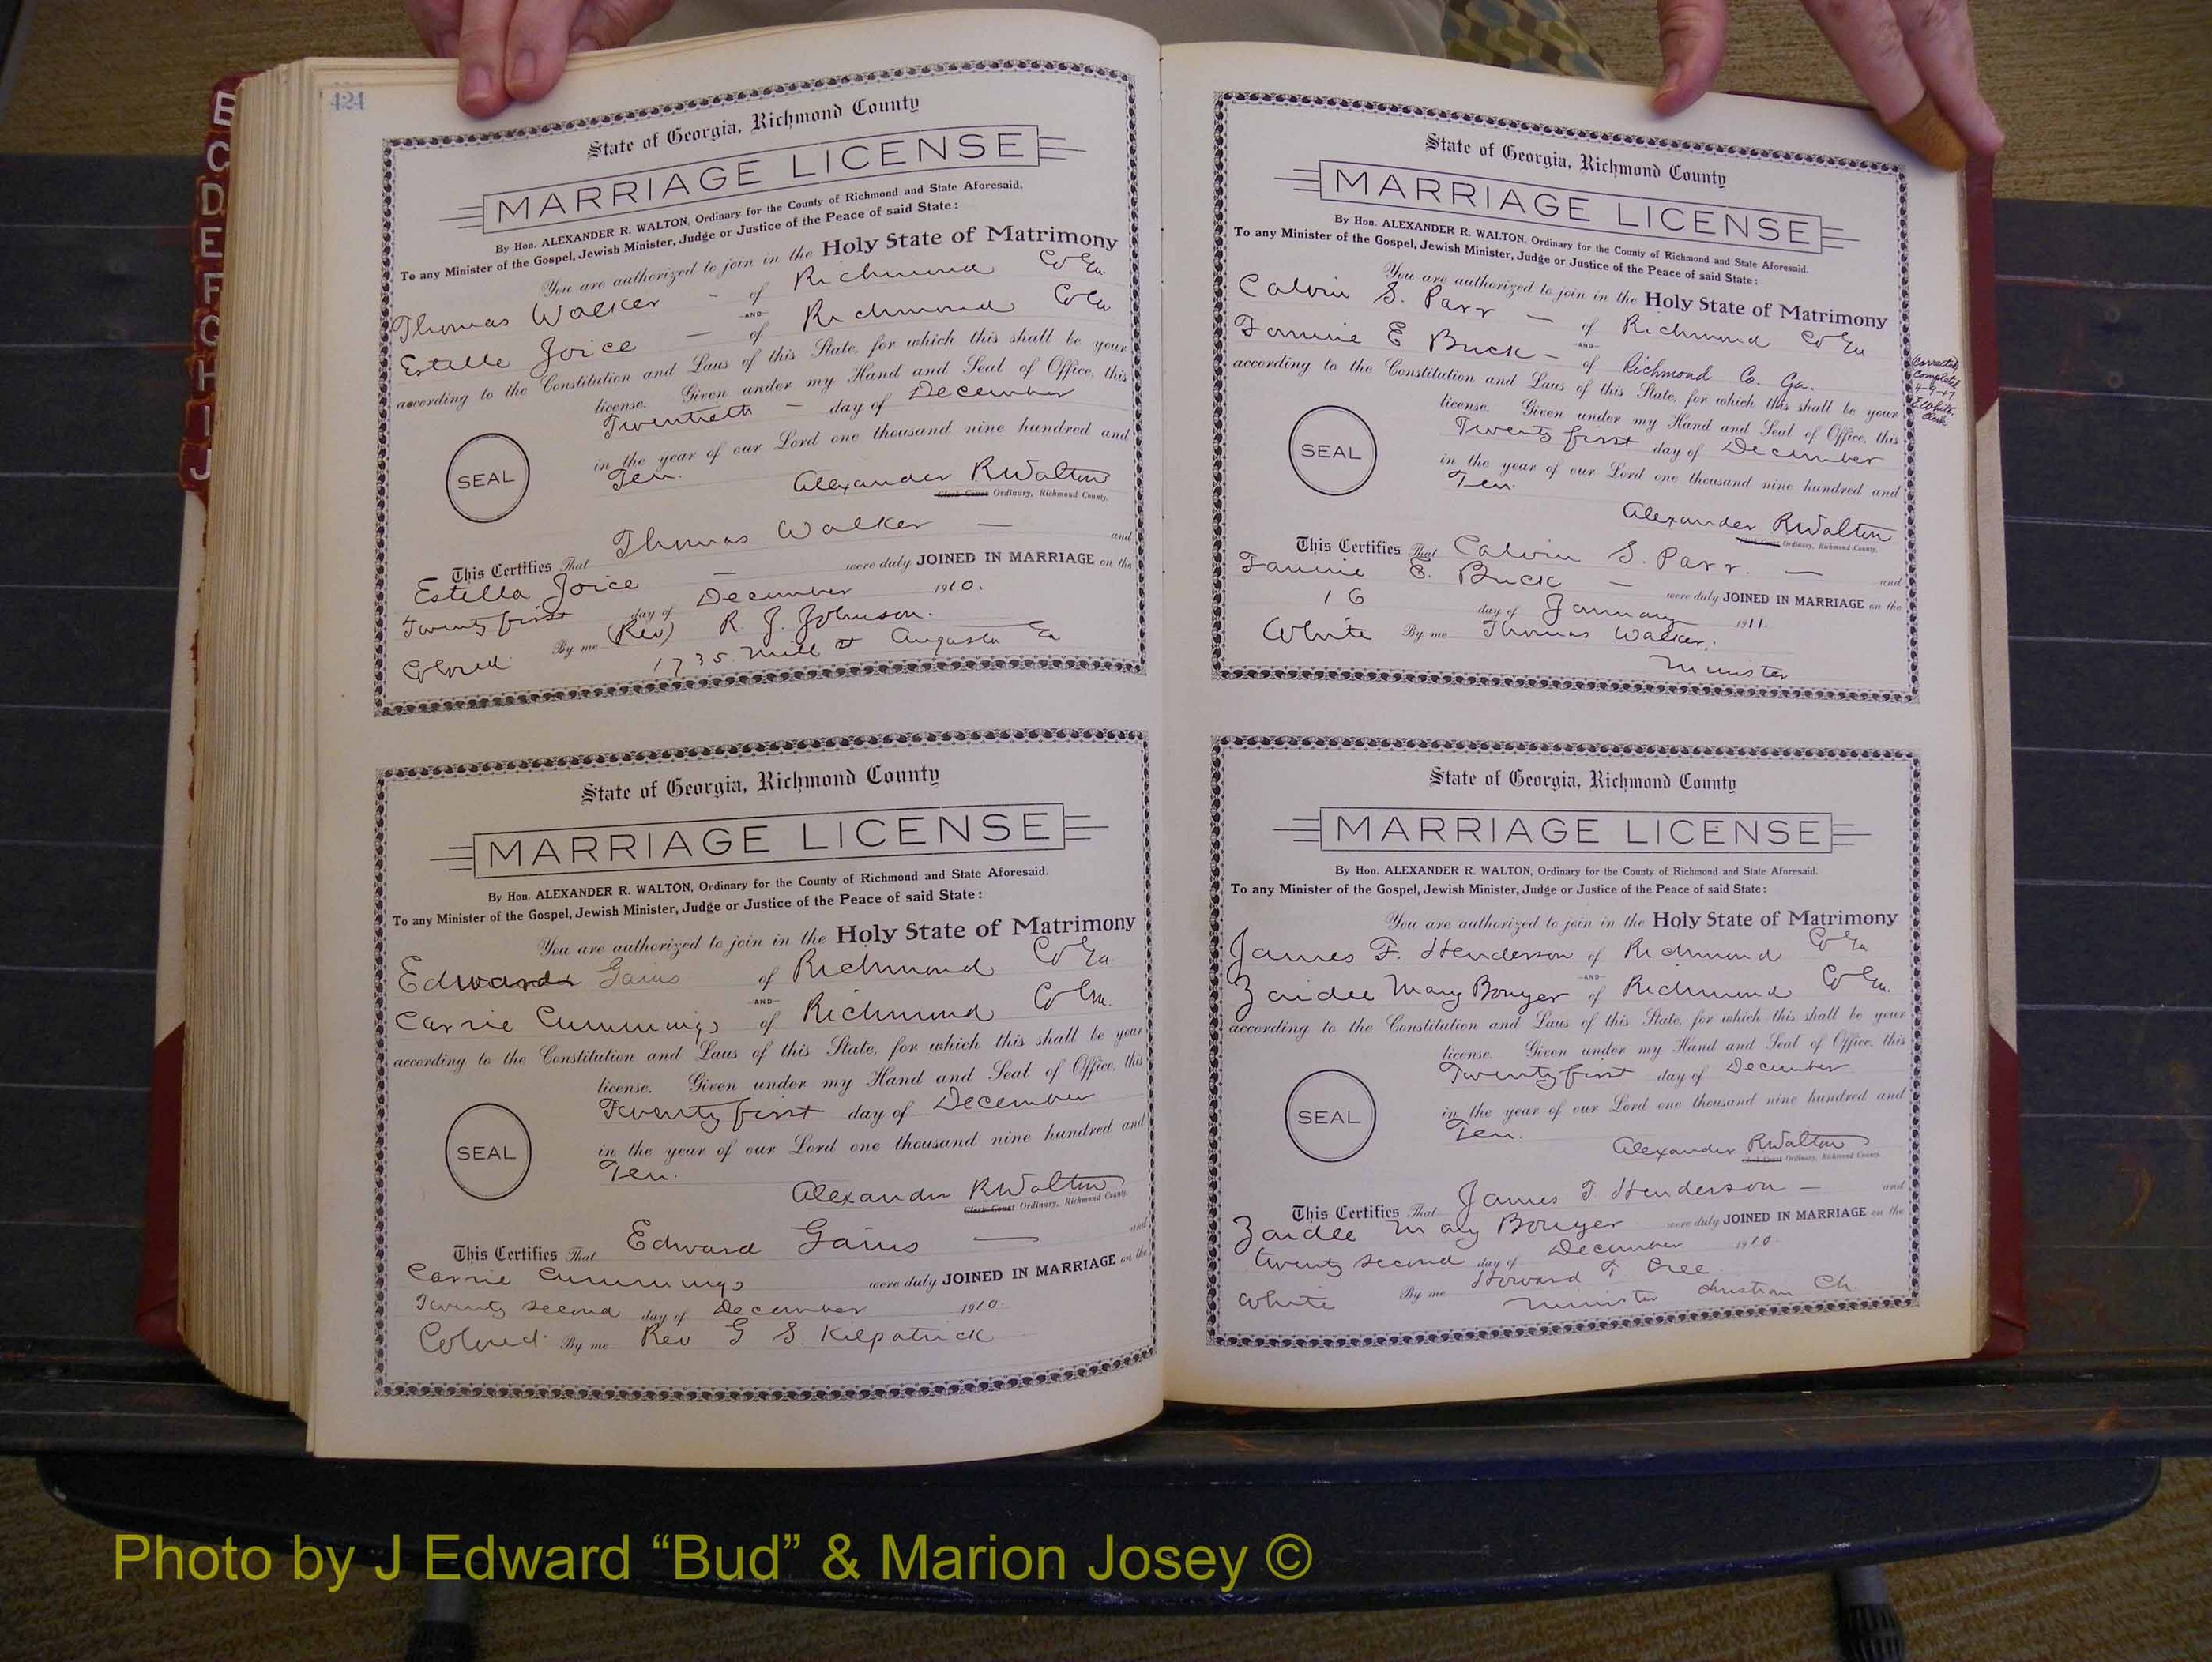 424
E
C
D
E
F
G
H
I
J
State of Georgia, Richmond County
MARRIAGE LICENSE
By Hon. ALEXANDER R. WALTON, Ordinary for the County of Richmond and State Aforesaid.
To any Minister of the Gospel, Jewish Minister, Judge or Justice of the Peace of said State:
You are authorized to join in the Holy State of Matrimony
Thomas Walker - of Richmond Co Ga.
-AND-
Estelle Joice - of Richmond Co Ga
according to the Constitution and Laws of this State, for which this shall be your
license. Given under my Hand and Seal of Office, this
Twentieth - day of December
in the year of our Lord one thousand nine hundred and
Ten.
SEAL
Alexander R Walton
Clerk Court Ordinary, Richmond County.
This Certifies That Thomas Walker - and
Estella Joice - were duly JOINED IN MARRIAGE on the
Twenty first day of December 1910.
Colored By me (Rev) R. J. Johnson.
1735 Mill st Augusta Ga
State of Georgia, Richmond County
MARRIAGE LICENSE
By Hon. ALEXANDER R. WALTON, Ordinary for the County of Richmond and State Aforesaid.
To any Minister of the Gospel, Jewish Minister, Judge or Justice of the Peace of said State:
You are authorized to join in the Holy State of Matrimony
Edward Gains of Richmond Co Ga
-AND-
Carrie Cummings of Richmond Co Ga.
according to the Constitution and Laws of this State, for which this shall be your
license. Given under my Hand and Seal of Office, this
Twenty first day of December
in the year of our Lord one thousand nine hundred and
Ten.
SEAL
Alexander R Walton
Clerk Court Ordinary, Richmond County.
This Certifies That Edward Gains - and
Carrie Cummings were duly JOINED IN MARRIAGE on the
Twenty second day of December 1910.
Colored. By me Rev G S. Kilpatrick
State of Georgia, Richmond County
MARRIAGE LICENSE
By Hon. ALEXANDER R. WALTON, Ordinary for the County of Richmond and State Aforesaid.
To any Minister of the Gospel, Jewish Minister, Judge or Justice of the Peace of said State:
You are authorized to join in the Holy State of Matrimony
Calvin S. Parr - of Richmond Co Ga
-AND-
Fannie E Buck - of Richmond Co. Ga.
according to the Constitution and Laws of this State, for which this shall be your
license. Given under my Hand and Seal of Office, this
Twenty first day of December
in the year of our Lord one thousand nine hundred and
Ten.
SEAL
Alexander R Walton
Clerk Court Ordinary, Richmond County.
This Certifies That Calvin S. Parr. - and
Fannie E. Buck - were duly JOINED IN MARRIAGE on the
16 day of January 1911.
White By me Thomas Walker.
Minister
Corrected
Completed
4-9-47
E White,
Clerk
State of Georgia, Richmond County
MARRIAGE LICENSE
By Hon. ALEXANDER R. WALTON, Ordinary for the County of Richmond and State Aforesaid.
To any Minister of the Gospel, Jewish Minister, Judge or Justice of the Peace of said State:
You are authorized to join in the Holy State of Matrimony
James F. Henderson of Richmond Co Ga
-AND-
Zaidee Mary Bouyer of Richmond Co Ga.
according to the Constitution and Laws of this State, for which this shall be your
license. Given under my Hand and Seal of Office, this
Twenty first day of December
in the year of our Lord one thousand nine hundred and
Ten.
SEAL
Alexander R Walton
Clerk Court Ordinary, Richmond County.
This Certifies That James F. Henderson - and
Zaidee Mary Bouyer were duly JOINED IN MARRIAGE on the
twenty second day of December 1910.
White By me Howard T Cree
Minister Christian Ch.
Photo by J Edward “Bud” & Marion Josey ©